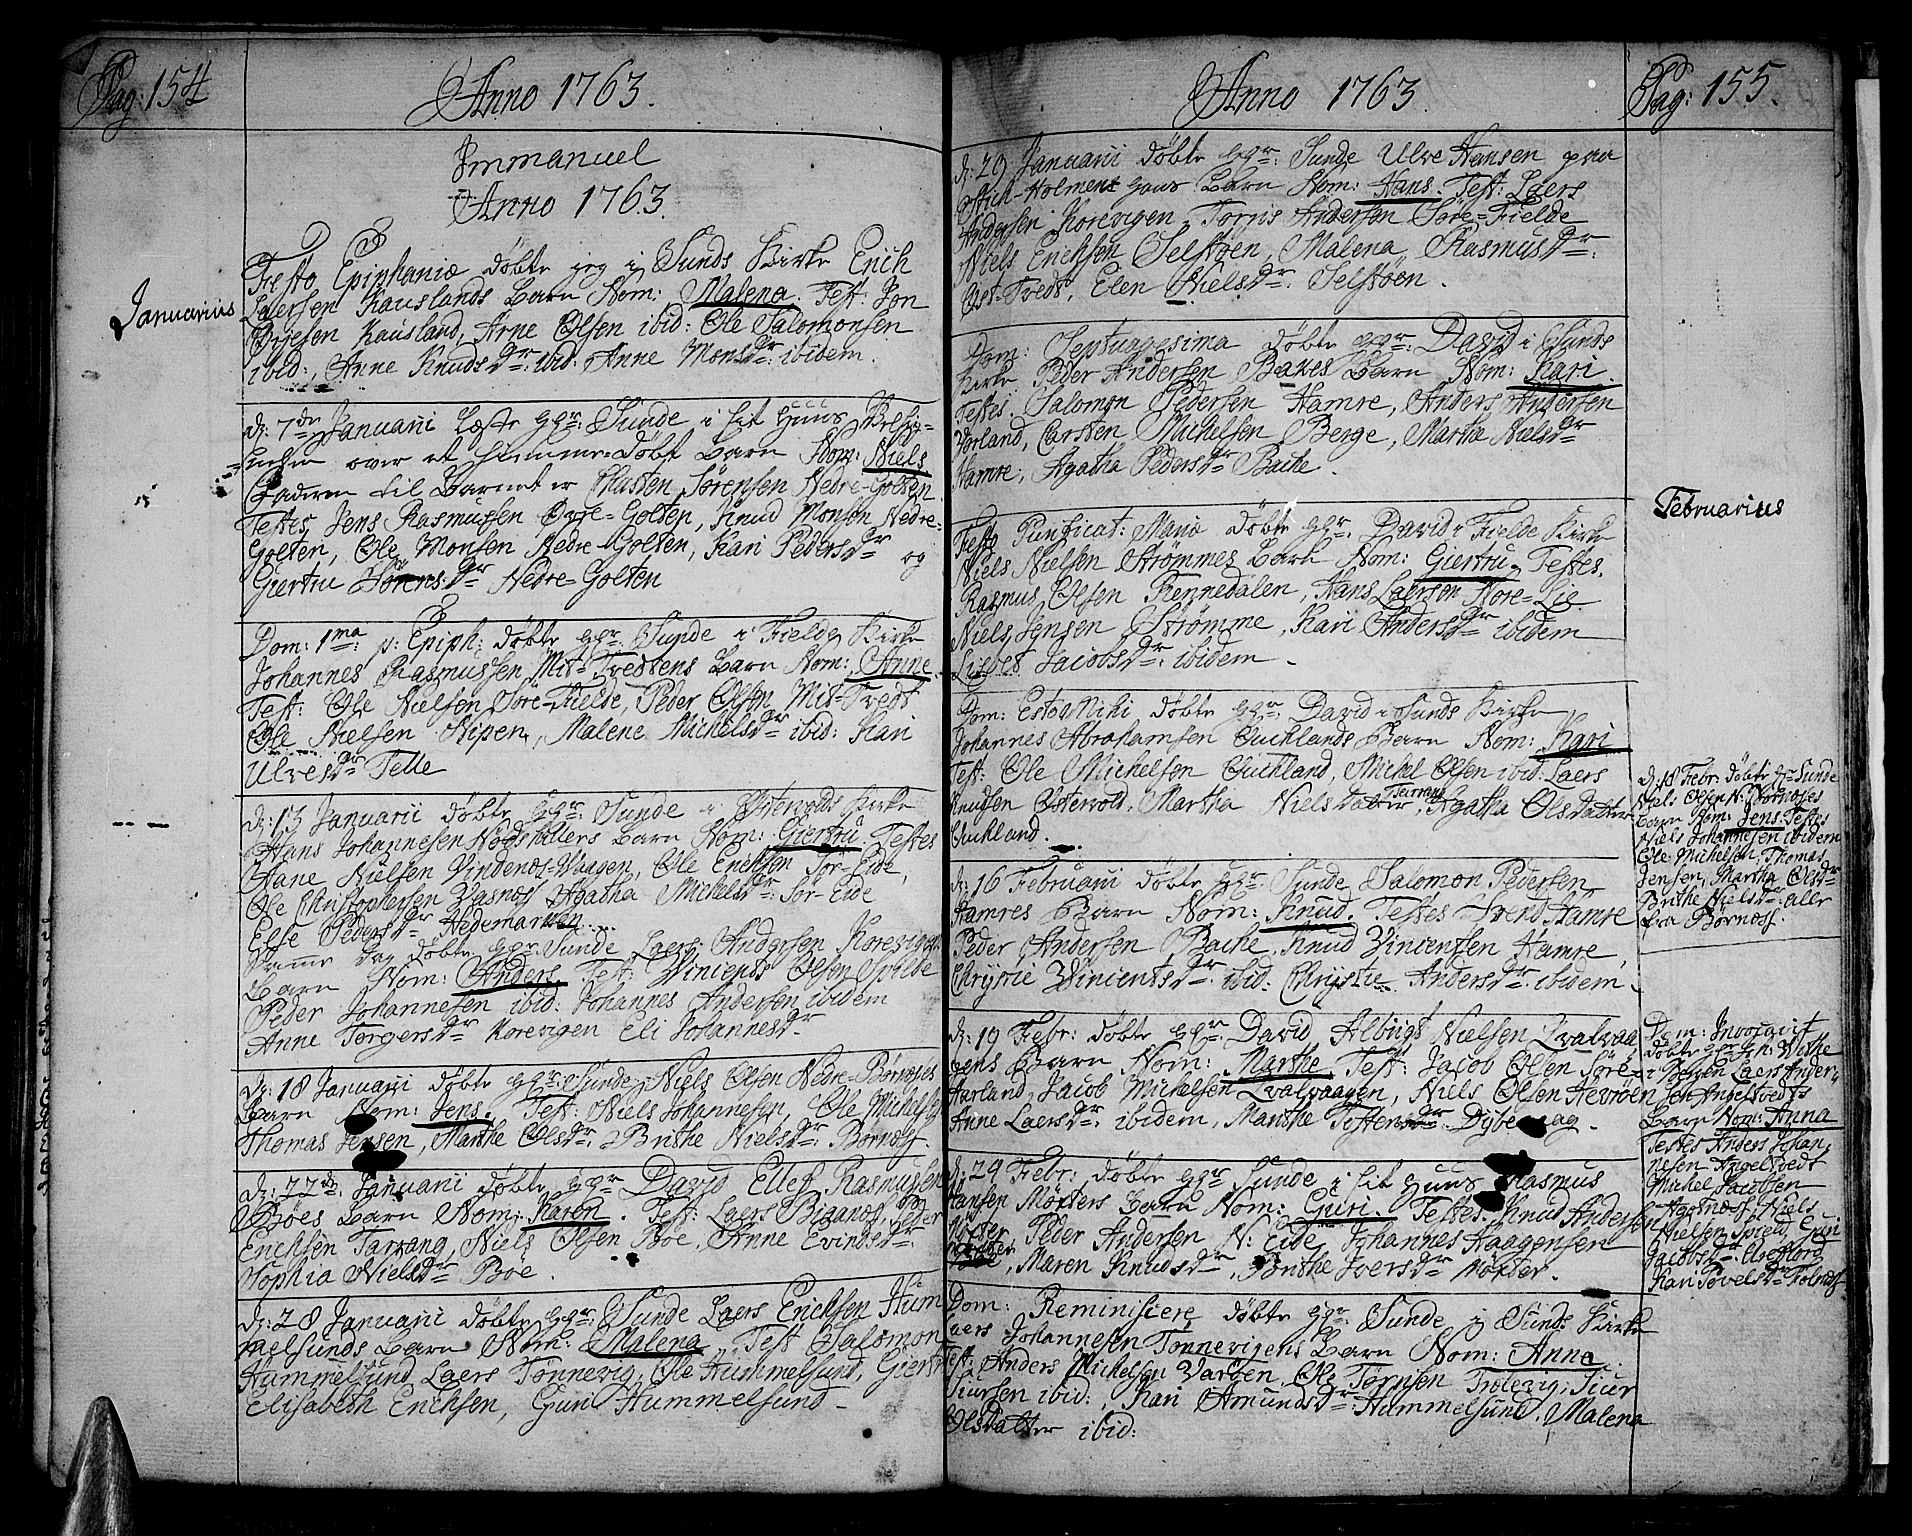 Pag: 154
Anno 1763.
Immanuel
Anno 1763.
Januarius
Festo Epiphaniæ døbte jeg i Sunds Kirke Erich
Laersen Kauslands Barn Nom: Malena. Test: Jon
Kausland, Arne Olsen ibid: Ole Salomonsen
ibid:, Anne Knudsdr: ibid: Anne Monsdr: ibidem.
d: 7de Januarii læste hr: Sunde i sit Huus
over et hiemme-døbt Barn Nom: Niels
Faderen til Barnet er Chasten Sørensen Nedre-Golten
Testes Jens Rasmussen Øvre-Golten, Knud Monsen Nedre-
Golten, Ole Monsen Nedre-Golten, Kari Pedersdr og
Giertru Sørensdr Nedre-Golten
Dom: 1ma p: Epiph: døbte hr: Sunde i Fielde Kirke
Johannes Rasmussen Mit-Tvedtens Barn Nom: Anne.
Test: Ole Nielsen Søre-Fielde, Peder Olsen Mit-Tvedt
Ole Nielsen Kipen, Malene Michelsdr ibid: Kari
Ulvesdr Telle
d: 13 Januarii døbte hr: Sunde i Østervolds Kirke
Hans Johannesen Barn Nom: Giertru. Testes
Aane Nielsen Vindenes-Waagen, Ole Erichsen Sør-Eide,
Ole Christophersen Vasnøs Agatha Michelsdr Sør-Eide
Else Pedersdr Hedemarken
Samme Dag døbte hr: Sunde Laers Andersen Korevigens
Barn Nom: Anders. Test: Vincents Olsen Spilde
Peder Johannesen ibid: Johannes Andersen ibidem
Anne Torgersdr Korevigen Eli Johannesdr
d: 18 Januarii døbte hr: Sunde Niels Olsen Nedre-Børnæses
Barn Nom: Jens. Test: Niels Johannesen, Ole Michelsen
Thomas Jensen, Marthe Olsdr: Brithe Nielsdr: Bornøs.
d: 22de Januarii døbte hr: David Ellef Rasmussen
Bøes Barn Nom: Karen. Test: Laers Biganøs, Peder
Erichsen Tarrang, Niels Olsen Bøe, Anne Evindsdr:
Sophia Nielsdr Bøe.
d: 28 Januarii døbte hr: Sunde Laers Erichsen Hum
melsunds Barn Nom: Malena. Test Salomon
Hummelsund, Laers Tønnevig, Ole Hummelsund, Giertru
Elisabeth Erichsen, Guri Hummelsund -
Anno 1763
Pag: 155.
d: 29 Januarii døbte hr: Sunde Ulve Hansen paa
Holmens hans Barn Nom: Hans. Test: Laers
Andersen Korevigen, Torris Andersen Søre-Fielde
Niels Erichsen Selstøen, Malena Rasmusdr:
Øst-Tvedt, Elen Nielsdr: Selstøen.
Dom: Septuagesima døbte hr: David i Sunds
Kirke Peder Andersen Bakes Barn Nom: Kari.
Testes. Salomon Pedersen Hamre, Anders Andersen
Vorland, Carsten Michelsen Berge, Martha Nielsdr
Hamre, Agatha Pedersdr Bache.
Februarius
Festo Purificat: Mariæ døbte hr: David i Fielde Kirke
Niels Nielsen Strømmes Barn Nom: Giertru. Testes.
Rasmus Olsen Rennedalen, Hans Laerson Nore-Lie
Niels Jensen Strømme, Kari Andersdr ibidem
Lisbet Jacobsdr: ibidem -
Dom: Esto Mihi døbte hr: David i Sunds Kirke
Johannes Abrahamsen Gucklands Barn Nom: Kari
Test: Ole Michelsen Guckland, Michel Olsen ibid: Laers
Knudsen Østervold, Martha Nielsdatter Tarrang, Agatha Olsdatter
Guckland.
d: 16 Februarii døbte hr: Sunde Salomon Pedersen
Hamres Barn Nom: Knud. Testes Svend Hamre
Peder Andersen Bache, Knud Vincentsen Hamre,
Chrystie Vincentsdr: ibid: Chrystie Andersdr: ibidem -
d: 19 Febr: døbte hr: David Albrigt Nielsen Qvalvaa
gens Barn Nom: Marthe. Test: Jacob Olsen Søre-
Harland, Jacob Michelsen Qvalvaagen, Niels Olsen Hevrøen
Anne Laersdr: ibidem, Marthe Tostensdr: Dybevaag.
d: 24 Febr: døbte hr Sunde i sit Huus Rasmus
Hansen Møkters Barn Nom: Guri. Testes. Knud Andersen
Møkter, Peder Andersen N: Eide, Johannes Haagensen
Møkter, Maren Knudsdr, Brithe Iversdr Møkter.
Dom: Reminisiere døbte hr: Sunde i Sunds Kirke
Laers Johannesen Tønnevigens Barn Nom: Anna.
Test: Anders Michelsen Varøen, Ole Tørrisen Trolevig, Siur
Siursen ibid:, Kari Amundsdr: Hummelsund, Malena
Olsdatter ibid:
d: 18 Febr: døbte hr: Sunde
Niels Olsen N: Børnæses
Barn Nom: Jens. Testes
Niels Johannesen ibidem
Ole Michelsen, Thomas
Jensen, Martha Olsdr
Brithe Nielsdr: alle
fra Bornøs.
Dom: Invocavit
døbte hr: Withe
Laers Anders
sen Angeltvedts
Barn Nom: Anna
Testes Anders Johan
nesen Angeltvedt
Michel Jacobsen
Agotnøs, Niels
Nielsen Spield, Guri
Jacobsdr
Kari Povelsdr